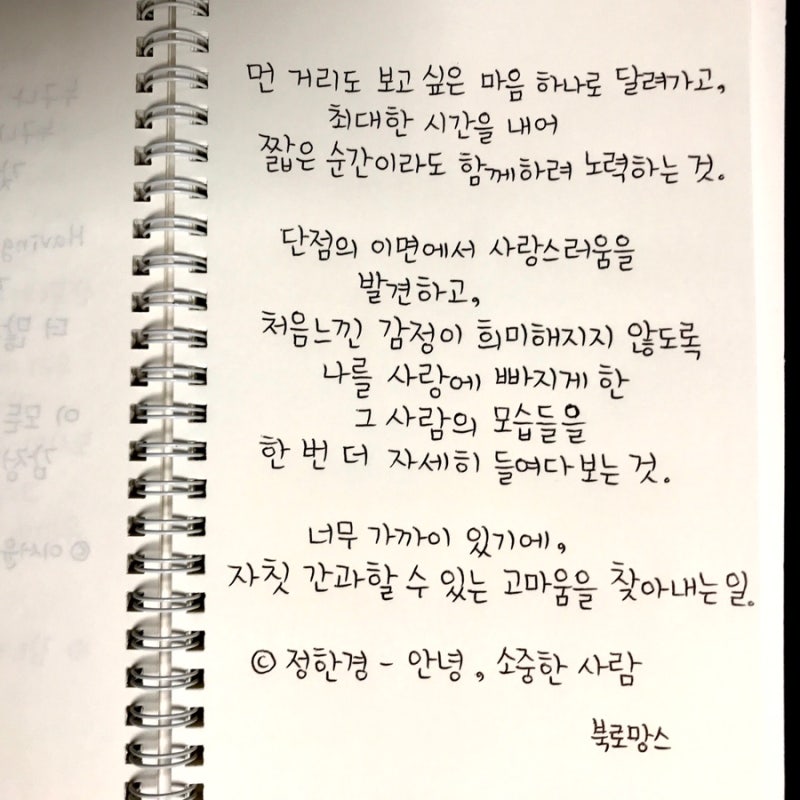 먼 거리도 보고 싶은 마음 하나로 달려가고,
최대한 시간을 내어
짧은 순간이라도 함께하려 노력하는 것.
단점의 이면에서 사랑스러움을
발견하고,
처음느낀 감정이 희미해지지 않도록
나를 사랑에 빠지게 한
그 사람의 모습들을
한 번 더 자세히 들여다보는 것.
너무 가까이 있기에,
자칫 간과할 수 있는 고마움을 찾아내는 일.
© 정한경 - 안녕, 소중한 사람
북로망스